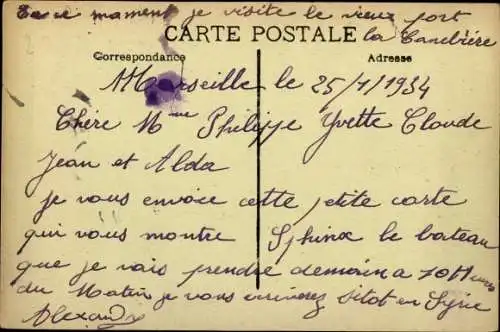 En ce mament je visite le vieux port
la Canebière
CARTE POSTALE
Correspondance
Adresse
Marseille le 25/1/1934
Chère Mme Philippe Yvette Claude
Jéan et Alda
je vous envoie cette petite carte
qui vous montre Sphinx le bateau
que je vais prendre demain a 10 H
du Matin je vous ecrirerez sitot en Syrie
Alexandre